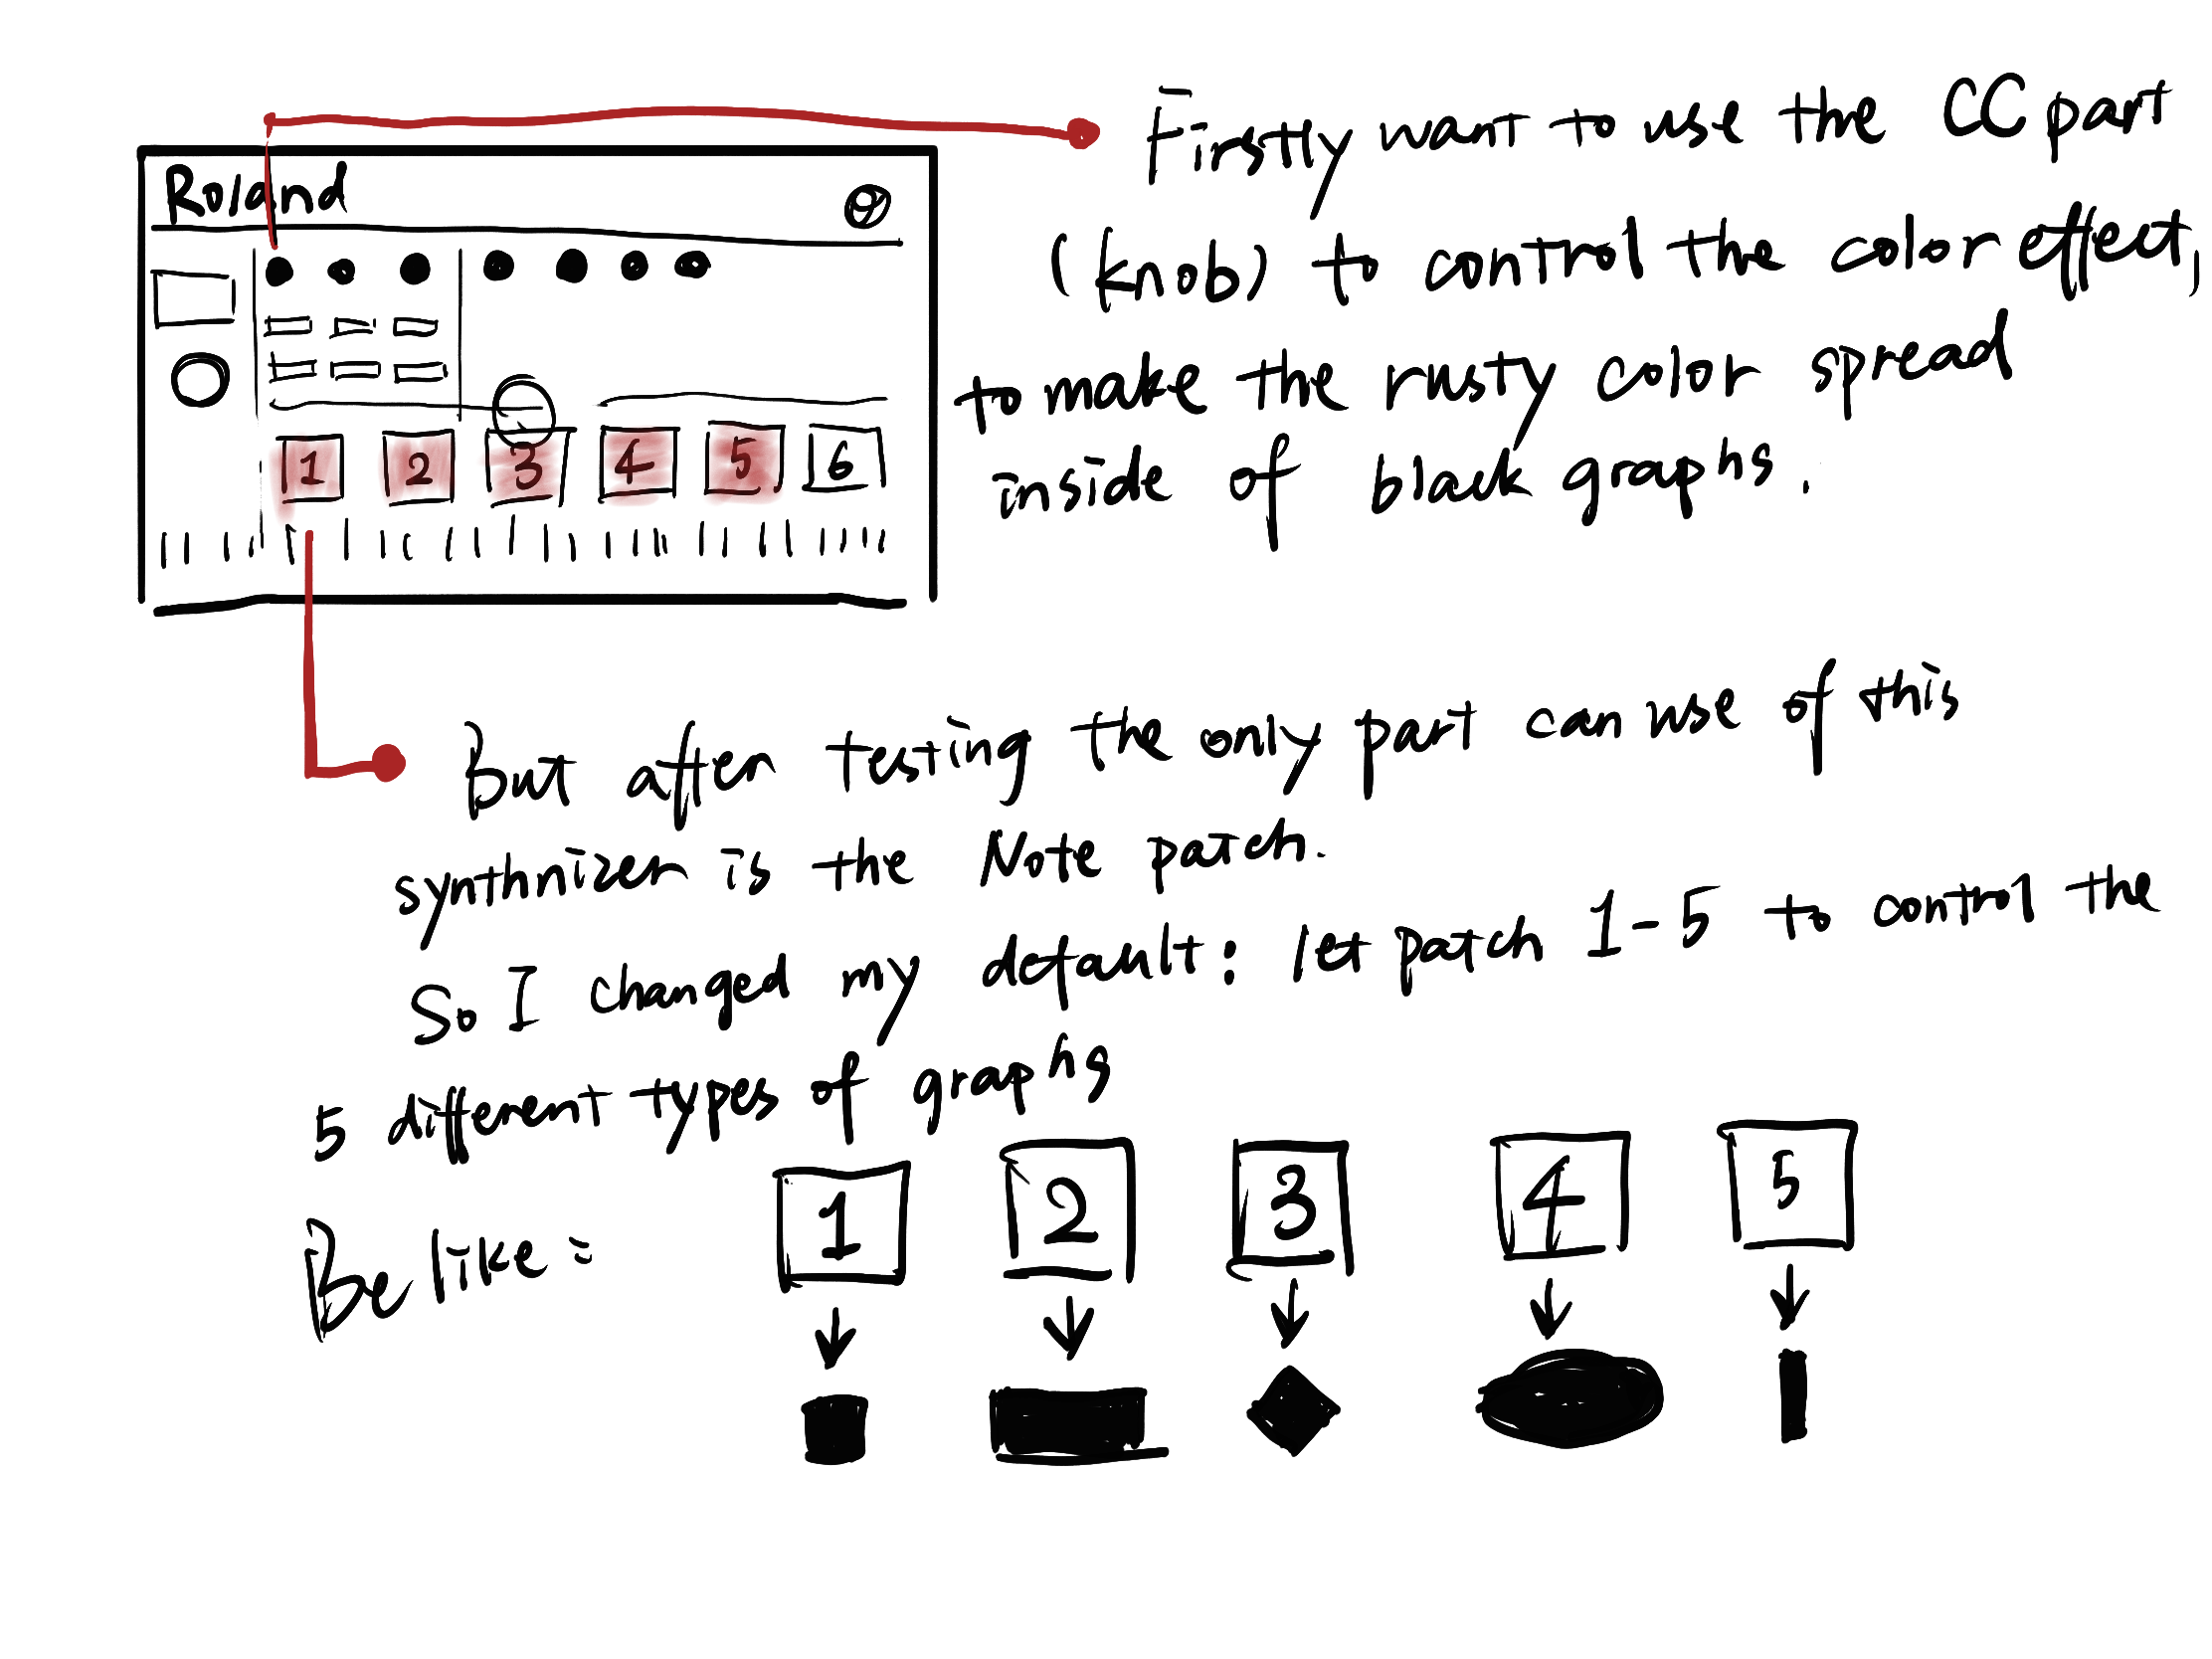 Roland
1 2 3 4 5 6
Firstly want to use the CC part
(knob) to control the color effect,
to make the rusty color spread
inside of black graphs.
But after testing the only part can use of this
synthnizer is the Note patch.
So I changed my default: let patch 1-5 to control the
5 different types of graphs
Be like:
1 2 3 4 5